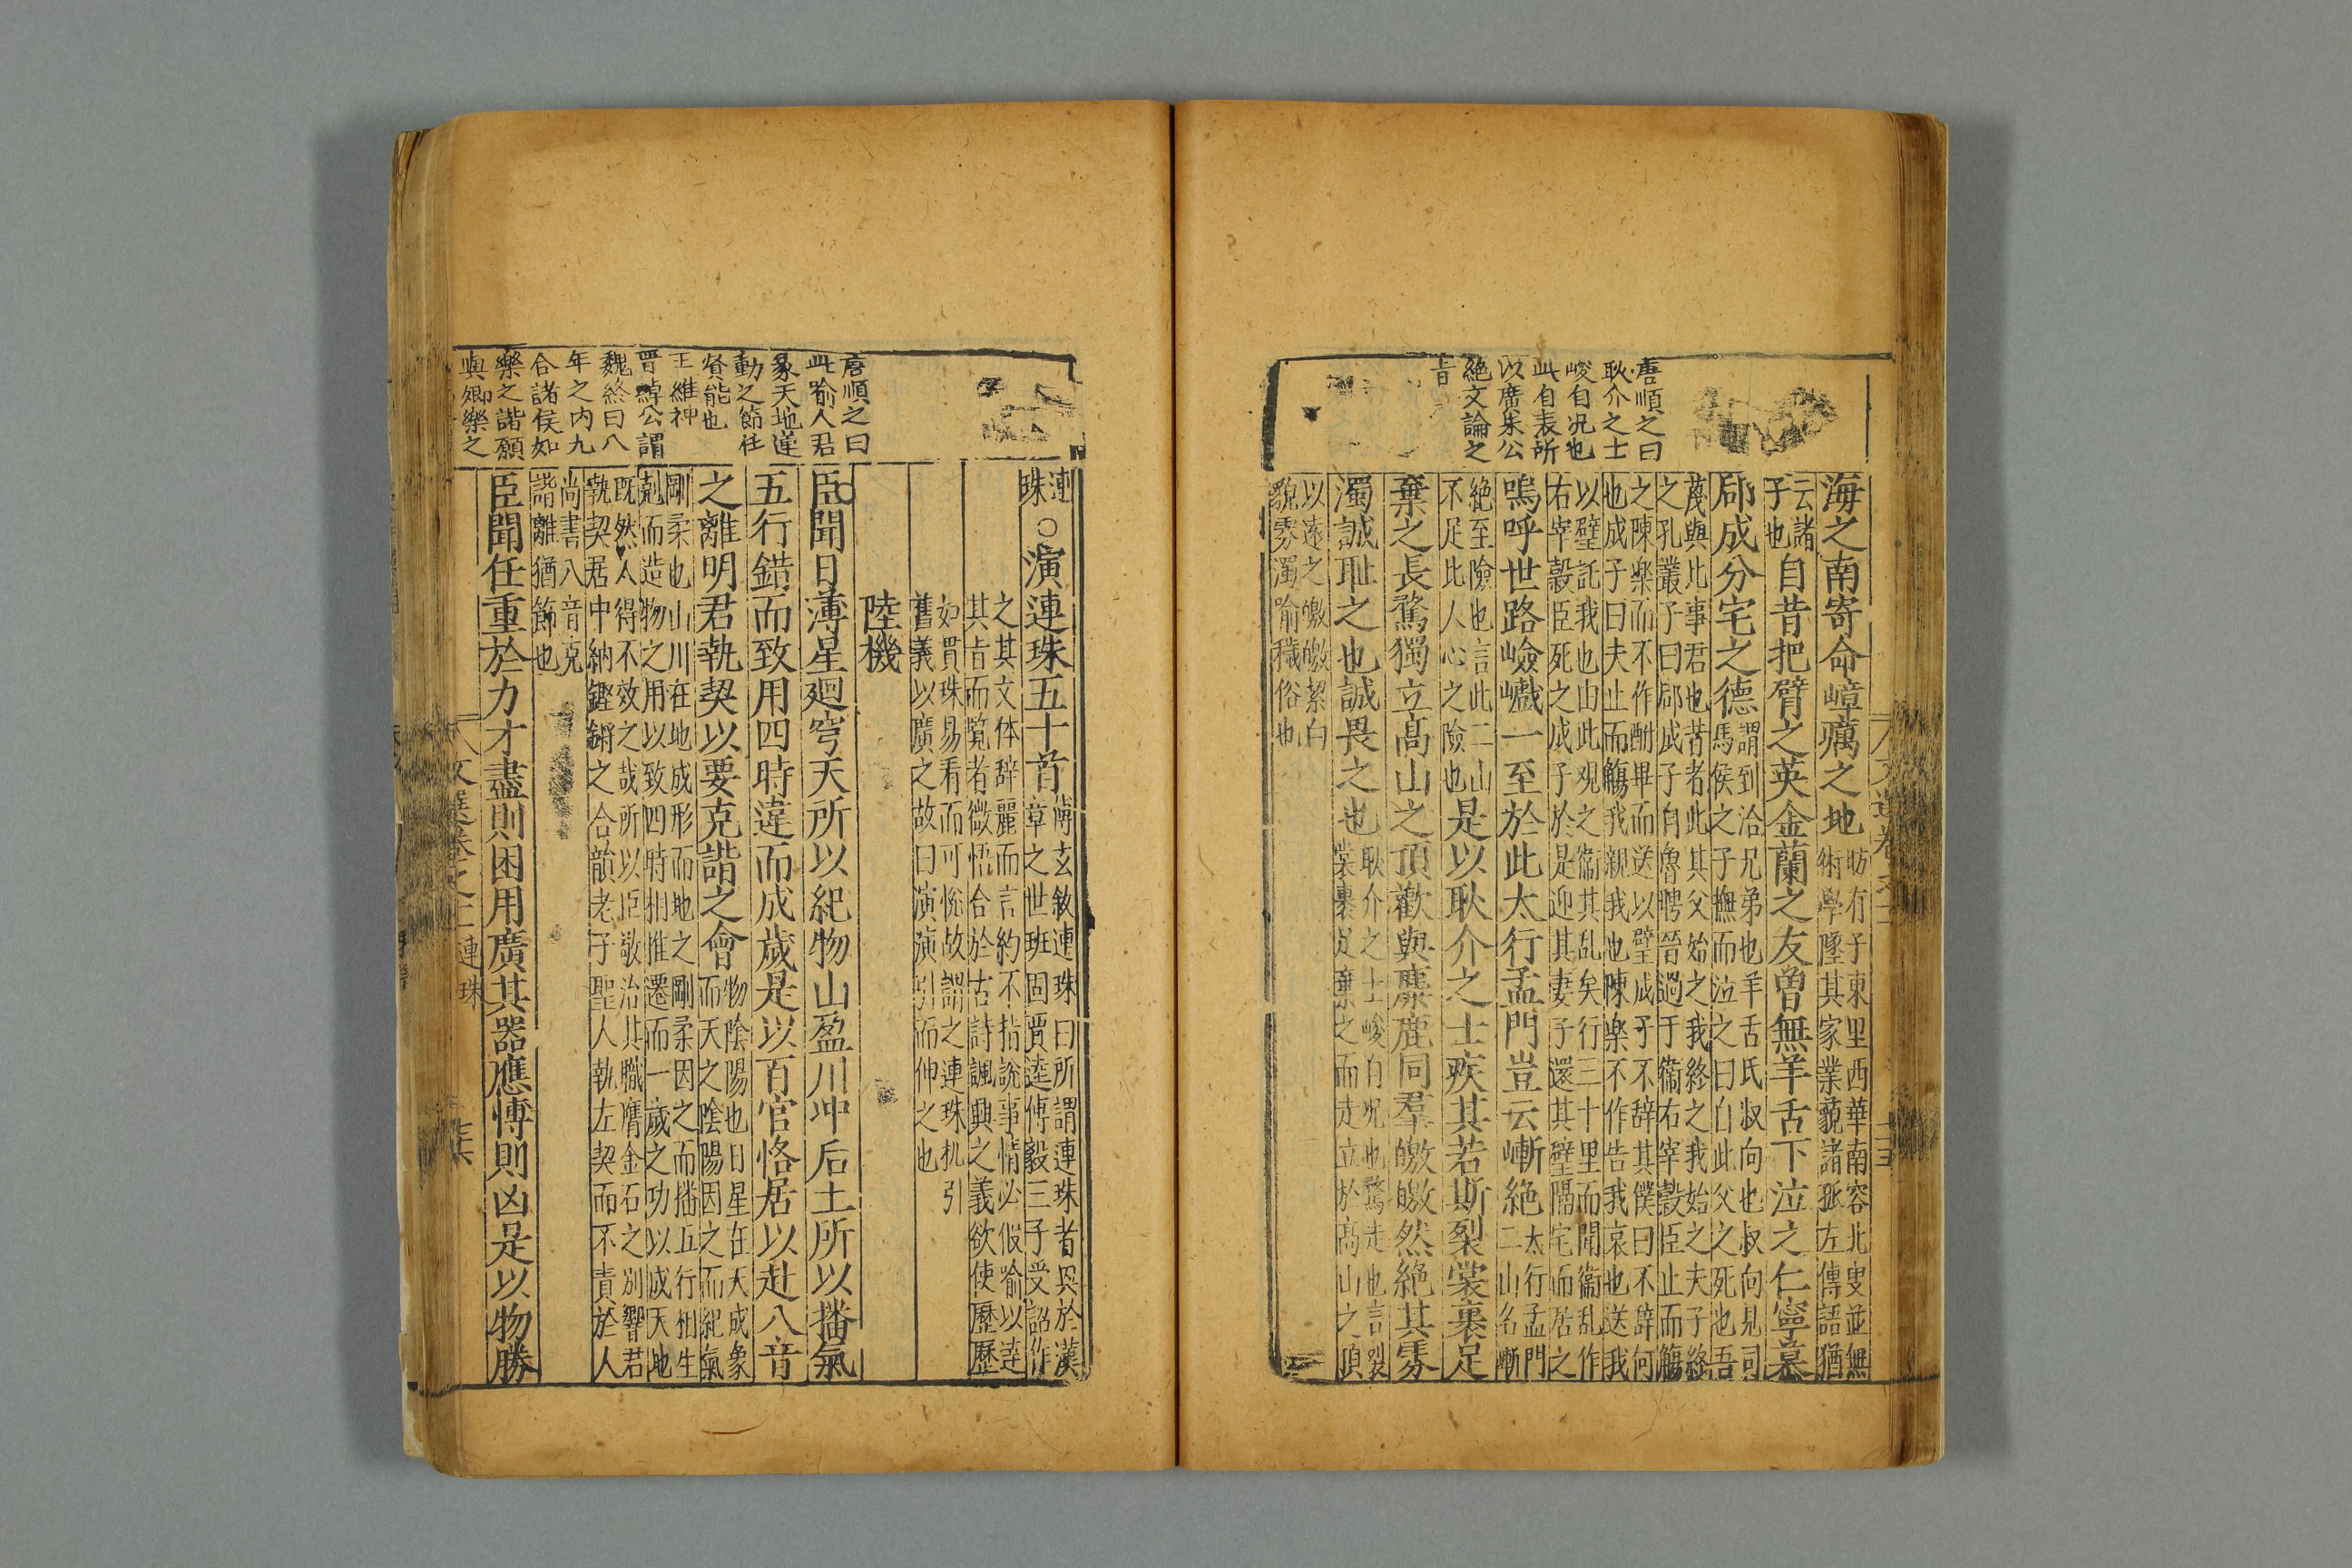 唐順之曰
耿介之士
峻自况也
此自表所
以廣朱公
絶文論之
旨
海之南寄命嶂癘之地
昉有子東里西華南容北叟並無
術學墜其家業藐諸孤左傳語猶
云諸
子也
自昔把臂之英金蘭之友曽無羊舌下泣之仁寧慕
郈成分宅之德
謂到洽兄弟也羊舌氏叔向也叔向見司
馬侯之子撫而泣之曰自此父之死也吾
蔑與比事君也昔者此其父始之我終之我始之夫子終
之孔叢子曰郈成子自魯聘晉過于衞右宰穀臣止而觴
之陳楽而不作酣畢而送以璧成子不辞其僕曰不辞何
也成子曰夫止而觴我親我也陳楽不作告我哀也送我
以璧託我也由此观之衞其乱矣行三十里而聞衞乱作
右宰穀臣死之成子於是迎其妻子還其璧隔宅而居之
嗚呼世路嶮巇一至於此太行孟門豈云嶃絶
太行孟門
二山名嶃
絶至險也言此二山
不足比人心之險也
是以耿介之士疾其若斯裂裳裹足
棄之長騖獨立髙山之頂歡與麋鹿同羣皦皦然絶其雰
濁誠耻之也誠畏之也
耿介之士峻自况也騖走也言裂
裳裹足棄之而走立於髙山之頂
以遠之皦皦絜白
貌雰濁喻穢俗也
唐順之曰
此喻人君
象天地運
動之節任
賢能也
王維神
晋悼公謂
魏終曰八
年之内九
合諸侯如
樂之諧願
與卿樂之
連
珠
○演連珠五十首
傅玄敘連珠曰所謂連珠者兴於漢
章之世班固賈逵傅毅三子受詔作
之其文体辞麗而言約不指說事情必假喻以逹
其旨而覧者微悟合於古詩諷興之義欲使歷歷
如貫珠易看而可恱故謂之連珠机引
舊義以廣之故曰演演引而伸之也
陸機
臣聞日薄星廻穹天所以紀物山盈川冲后土所以播氣
五行錯而致用四時違而成歲是以百官恪居以赴八音
之離明君執契以要克諧之會
物陰陽也日星在天成象
而天之陰陽因之而紀氣
剛柔也山川在地成形而地之剛柔因之而播五行相生
剋而造物之用以致四時相推遷而一歲之功以成天地
既然人得不效之哉所以臣敬治其職膺金石之别響君
執契居中納鏗鏘之合韻老子聖人執左契而不責於人
尚書八音克
諧離猶節也
臣聞任重於力才盡則困用廣其器應愽則凶是以物勝
文選卷之十二
連珠